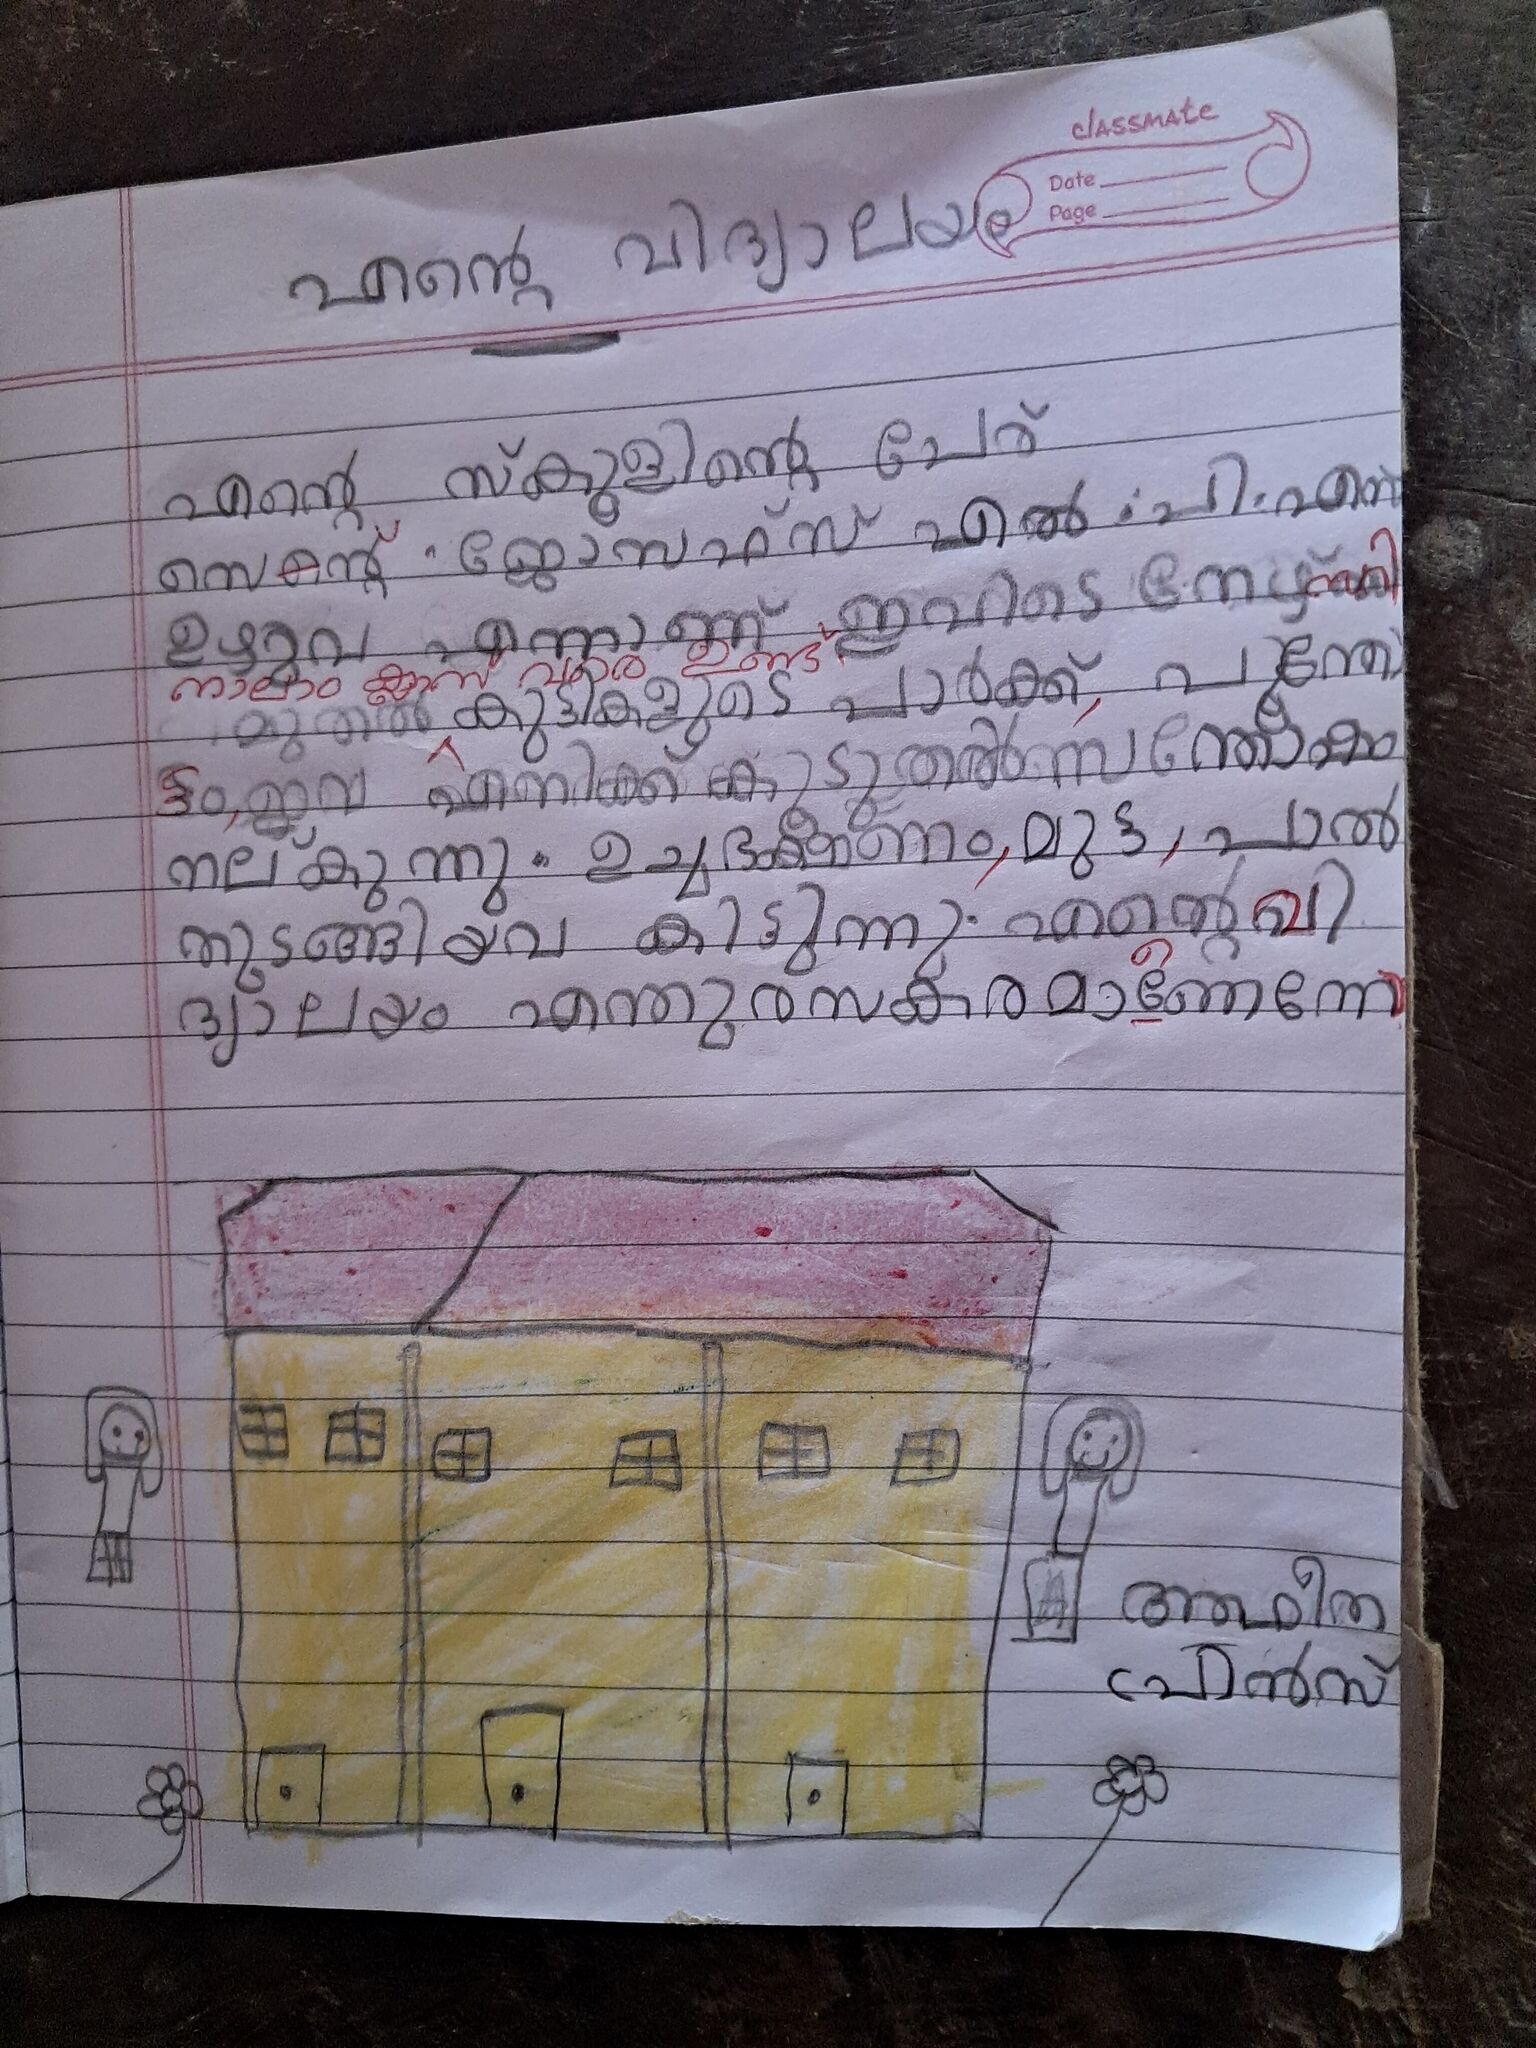 classmate
Date
Page
എന്റെ വിദ്യാലയം
എന്റെ സ്കൂളിന്റെ പേര്
സെന്റ് ജോസഫ്സ് എൽ.പി.എസ്
ഉഴുവ എന്നാണ് ഇവിടെ നേഴ്സറി
മുതൽ നാലാം ക്ലാസ് വരെ ഉണ്ട്.
കുട്ടികളുടെ പാർക്ക്, പൂന്തോ
ട്ടം, ഇവ എനിക്ക് കൂടുതൽ സന്തോഷം
നല്കുന്നു. ഉച്ചഭക്ഷണം, മുട്ട, പാൽ
തുടങ്ങിയവ കിട്ടുന്നു. എന്റെ വി
ദ്യാലയം എന്തു രസകരമാണെന്നോ
പ്രിൻസ്